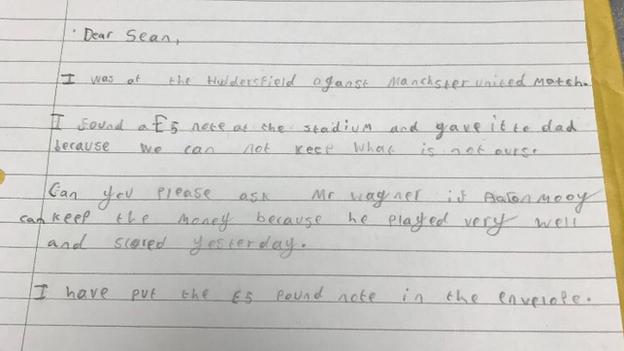 Dear Sean,
I was at the Huddersfield aganst Manchster united Match.
I found a £5 note at the stadium and gave it to dad
because we can not keep what is not ours.
Can you please ask Mr Wagner if Aaron Mooy
can keep the money because he played very well
and scored yesterday.
I have put the £5 pound note in the envelope.